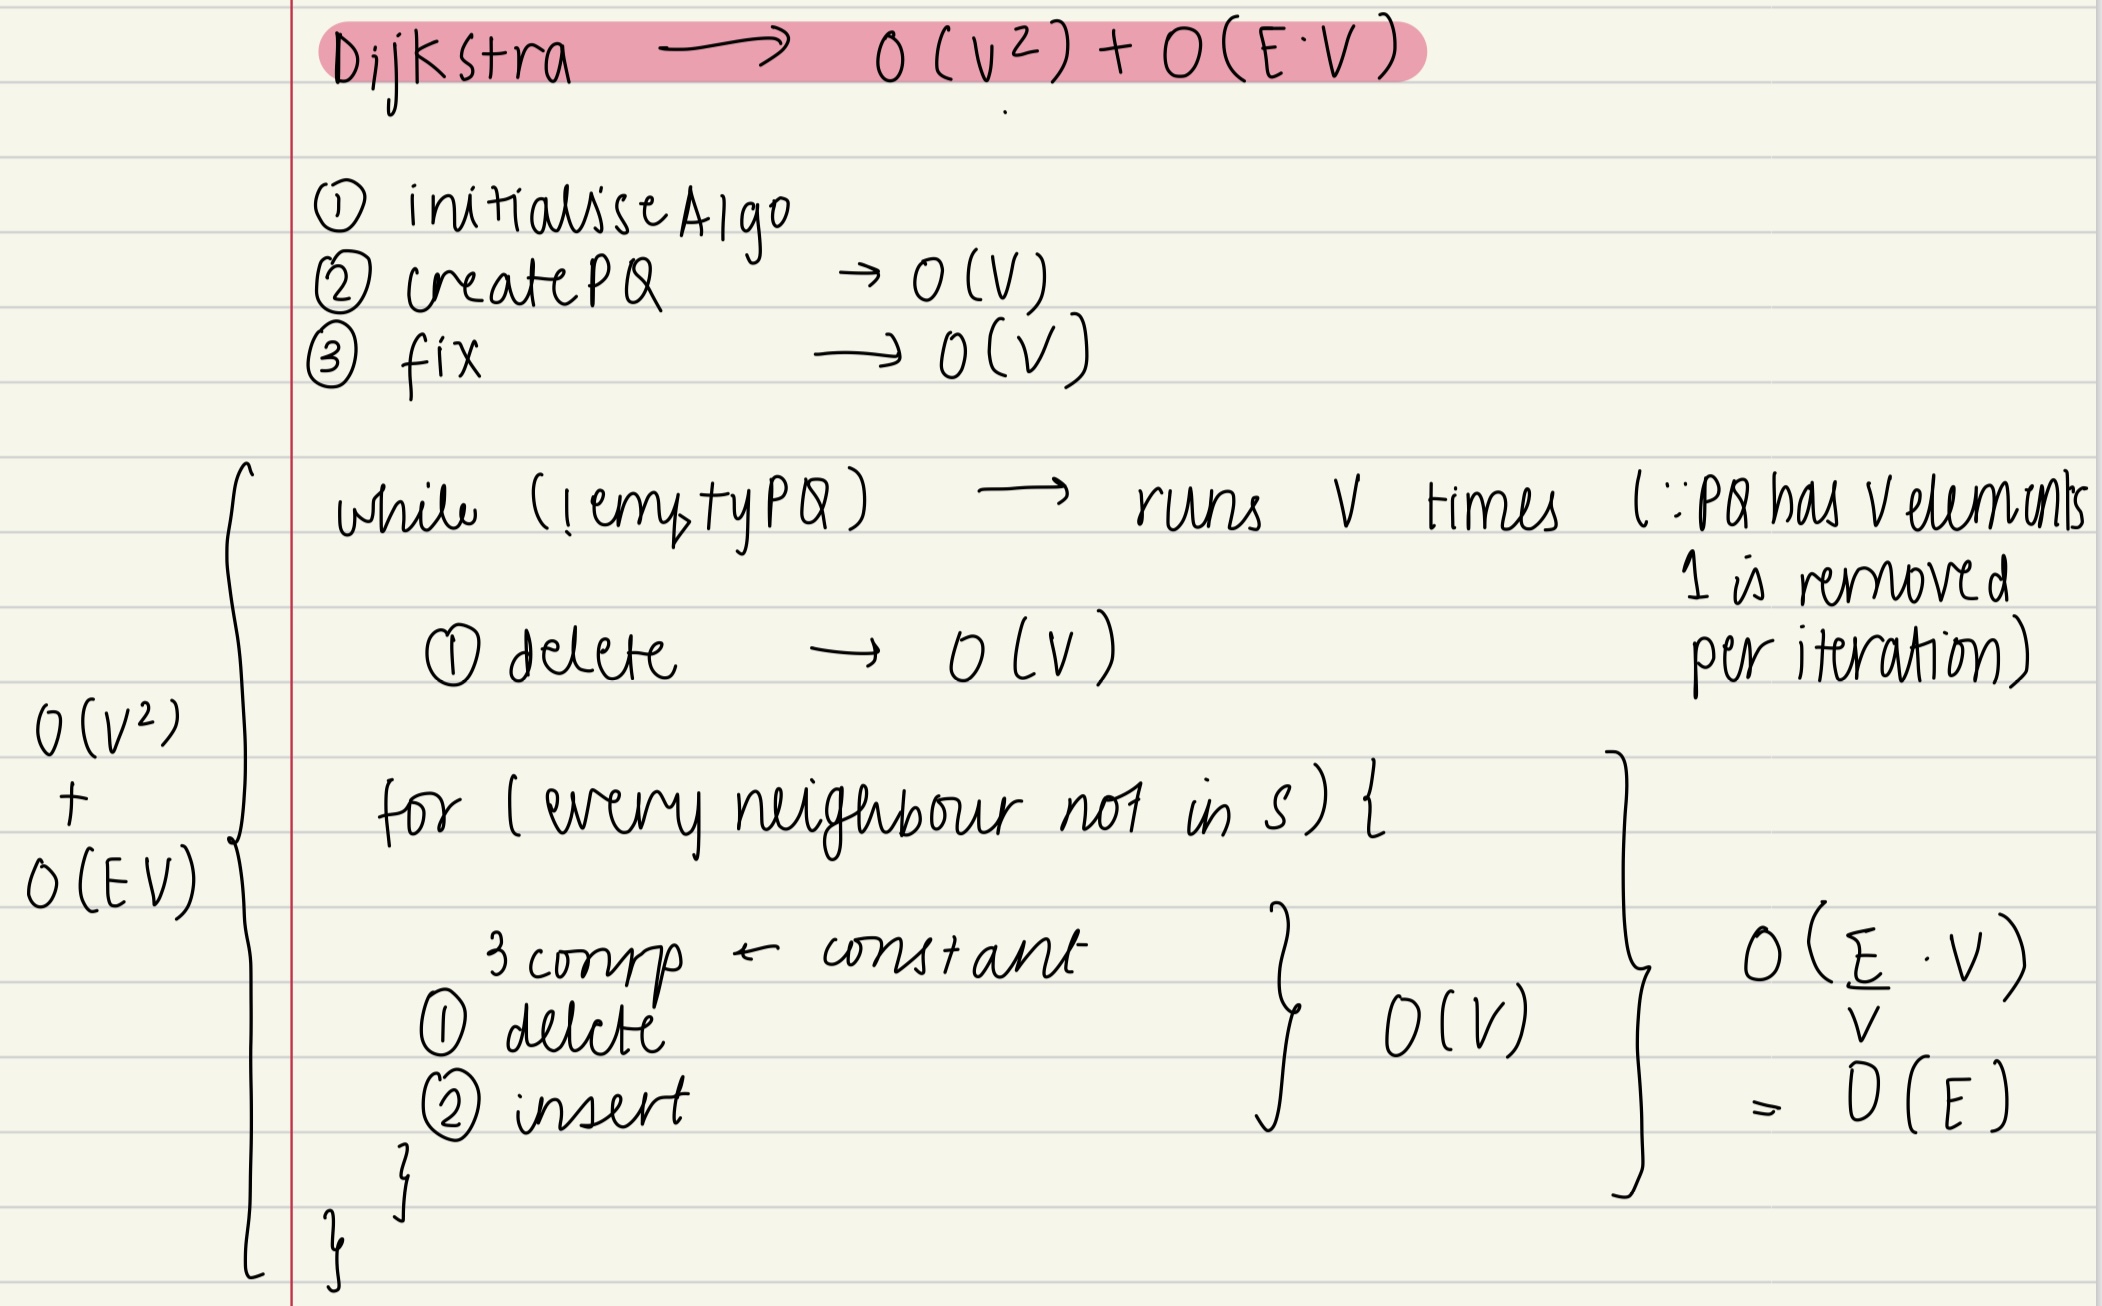 Dijkstra → O(V²) + O(E·V)
① initialiseAlgo
② createPQ → O(V)
③ fix → O(V)
while (!emptyPQ) → runs V times (∵PQ has V elements
1 is removed
① delete → O(V) per iteration)
O(V²)
+
O(EV)
for (every neighbour not in S) {
3 comp ← constant
① delete
② insert
} O(V)
} O(E/V · V)
= O(E)
}
}